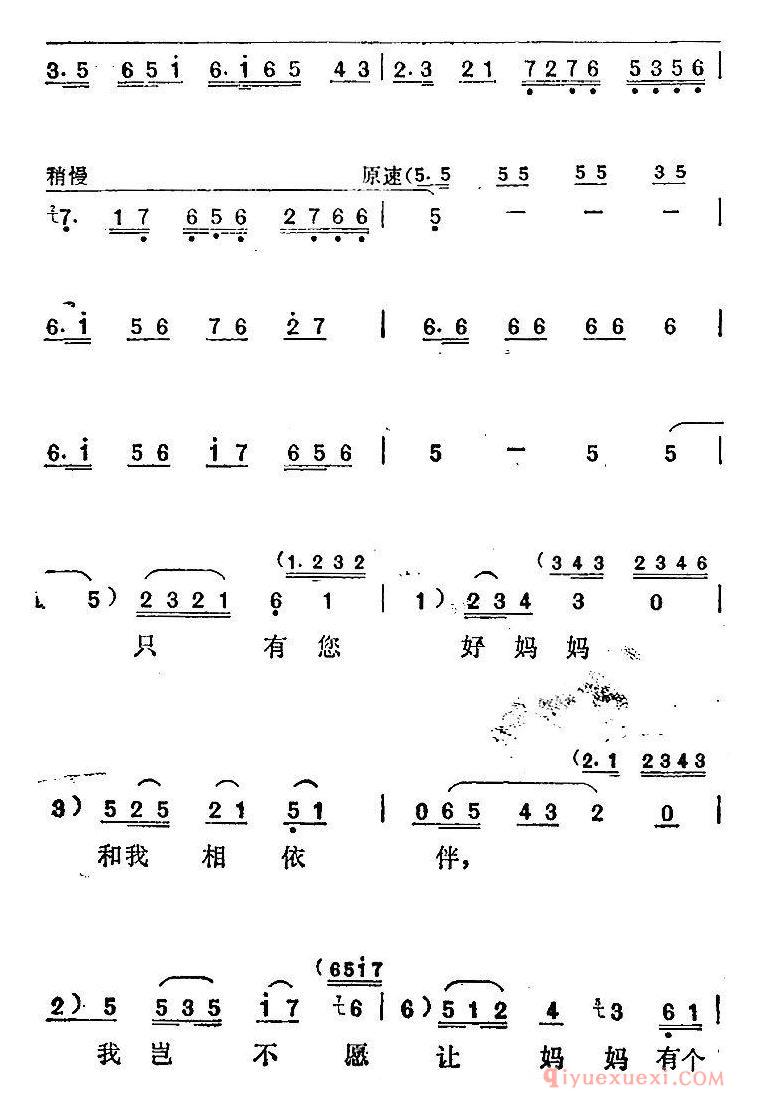 3. 5 6 5 i 6. i 6 5 4 3 | 2. 3 2 1 7 2 7 6 5 3 5 6 |
稍慢 原速 (5. 5 5 5 5 5 3 5
7. 1 7 6 5 6 2 7 6 6 | 5 — — — |
6. i 5 6 7 6 2 7 | 6. 6 6 6 6 6 6 |
6. i 5 6 i 7 6 5 6 | 5 — 5 5 |
(1. 2 3 2 (3 4 3 2 3 4 6
5) 2 3 2 1 6 1 | 1) 2 3 4 3 0 |
只 有 您 好 妈 妈
(2. 1 2 3 4 3
3) 5 2 5 2 1 5 1 | 0 6 5 4 3 2 0 |
和我 相 依 伴，
(6 5 i 7
2) 5 5 3 5 i 7 6 | 6) 5 1 2 4 3 6 1 |
我 岂 不 愿 让 妈 妈 有 个
qiyuexuexi.com